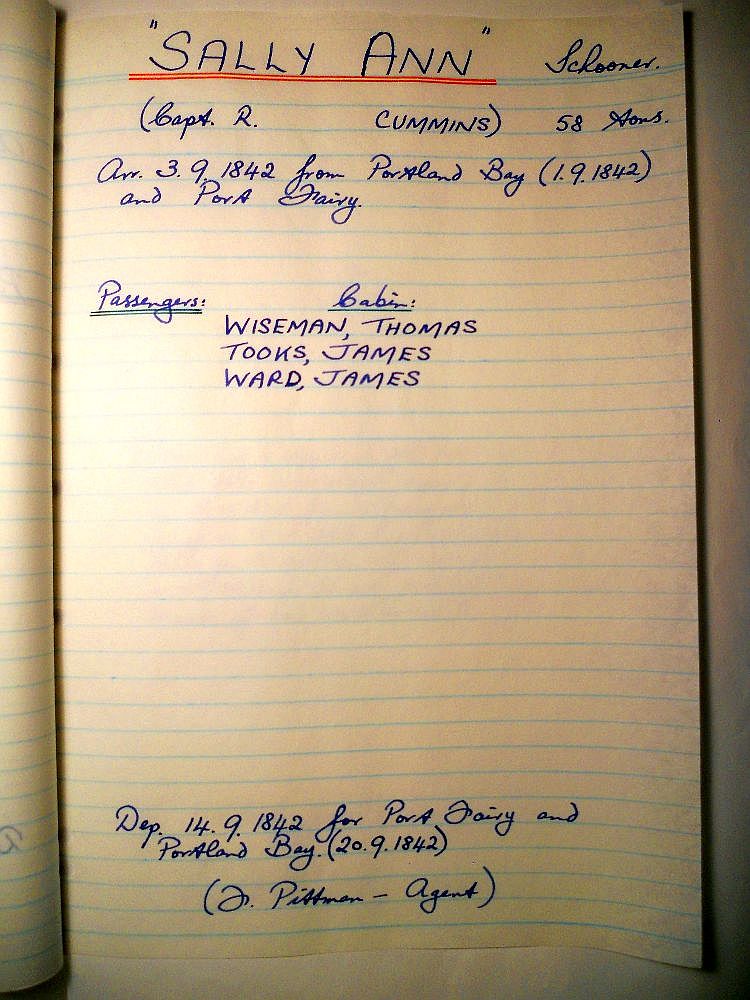 "SALLY ANN" Schooner.
(Capt. R. CUMMINS) 58 tons.
Arr. 3.9.1842 from Portland Bay (1.9.1842)
and Port Fairy.
Passengers: Cabin:
WISEMAN, THOMAS
TOOKS, JAMES
WARD, JAMES
Dep. 14.9.1842 for Port Fairy and
Portland Bay. (20.9.1842)
(J. Pittman - Agent)